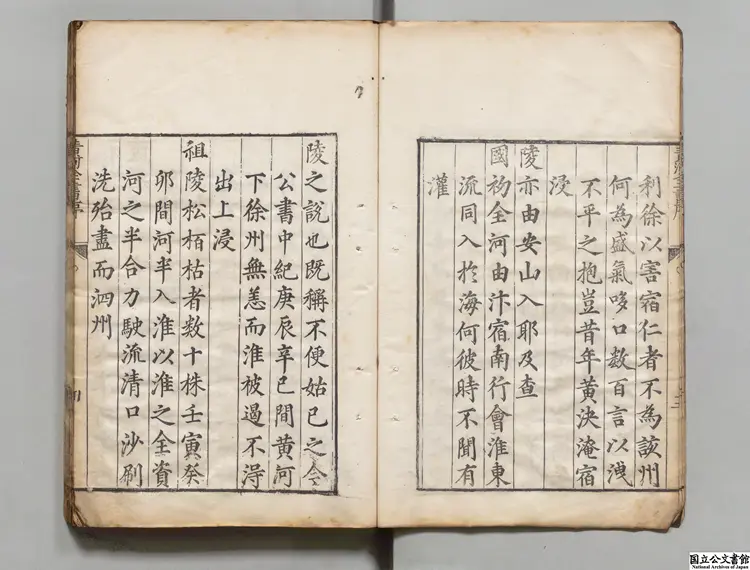 利徐以害宿仁者不為該州
何為盛氣哆口數百言以洩
不平之抱豈昔年黃決淹宿
浸
陵亦由安山入耶及查
國初全河由汴宿南行會淮東
流同入於海何彼時不聞有
灌
陵之說也既稱不便姑已之今
公書中紀庚辰辛巳間黃河
下徐州無恙而淮被遏不淂
出上浸
祖陵松栢枯者数十株壬寅癸
夘間河半入淮以淮之全資
河之半合力駛流清口沙刷
洗殆盡而泗州
国立公文書館
National Archives of Japan